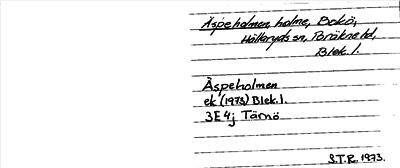 Äspeholmen, holme, Bokö,
Hällaryds sn, Bräkne hd,
Blek. l.
Äspeholmen
ek (1973) Blek. l.
3E 4j Tärnö
S.T.R. 1973.